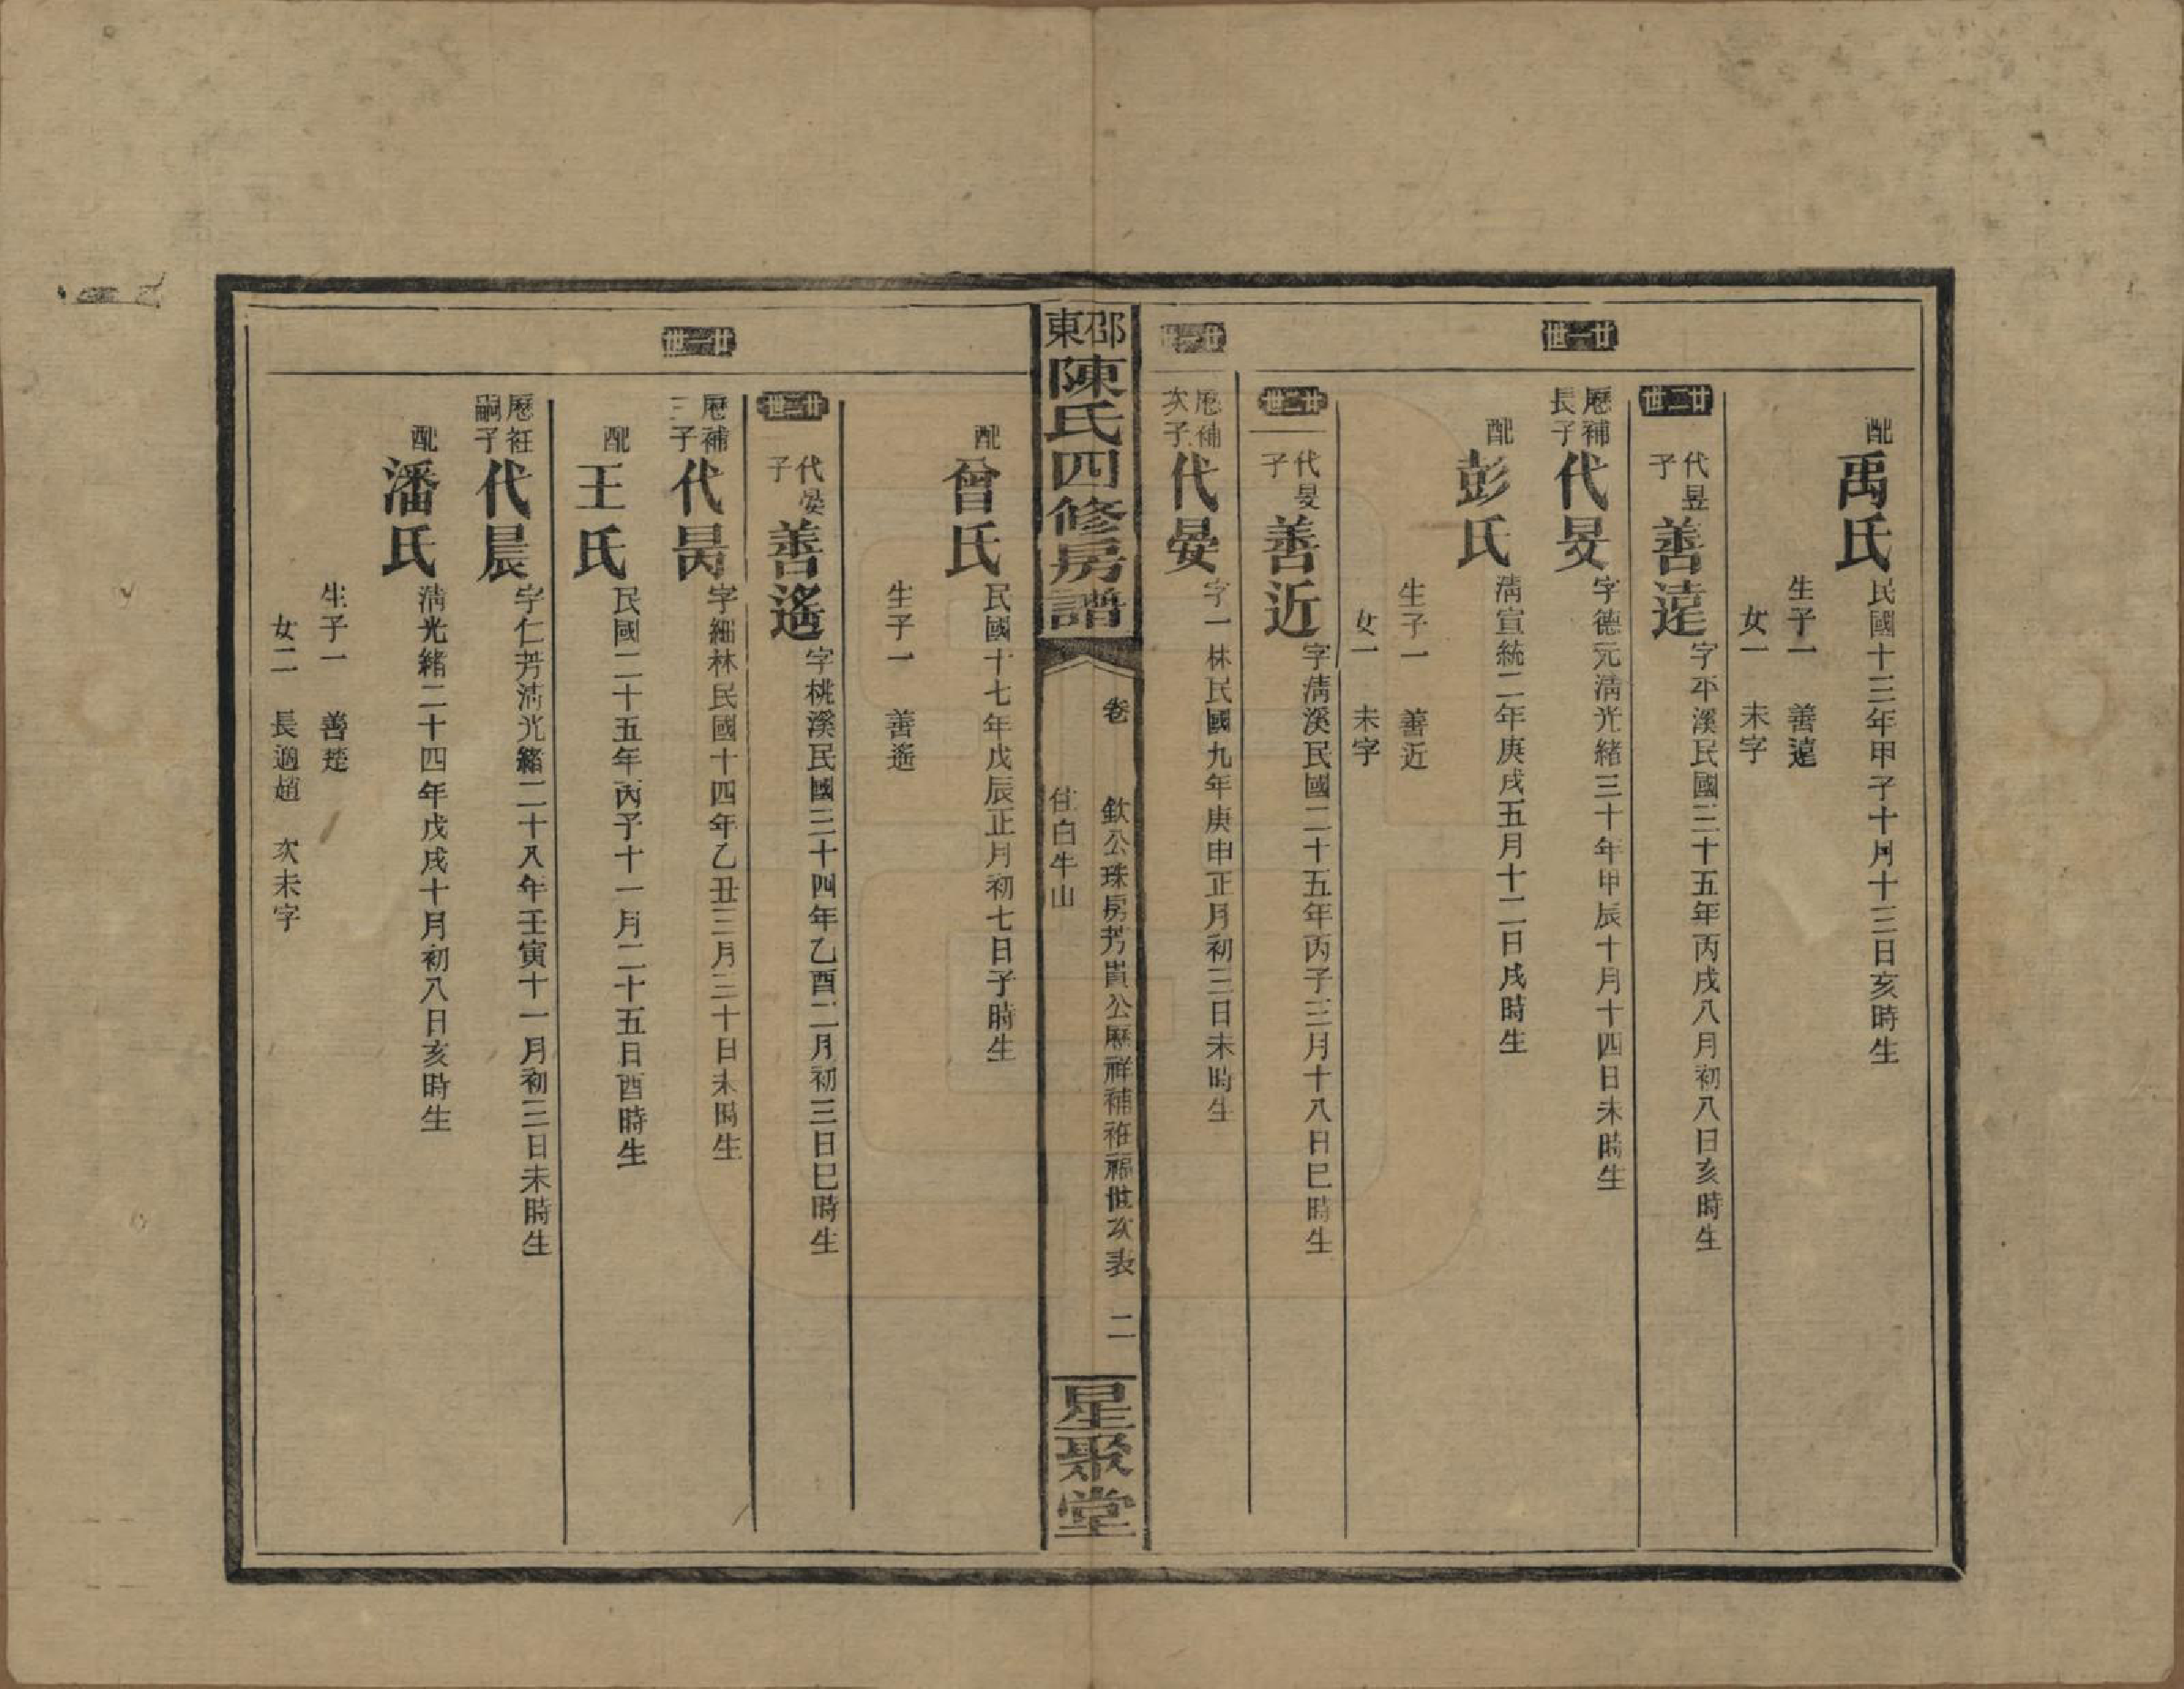 配禹氏民國十三年甲子十月十三日亥時生
生子一　善遠
女一　未字
廿二世
代昱子善遠字平溪民國三十五年丙戌八月初八日亥時生
廿一世
歷補長子代旻字德元清光緒三十年甲辰十月十四日未時生
配彭氏清宣統二年庚戌五月十二日戌時生
生子一　善近
女一　未字
廿二世
代旻子善近字清溪民國二十五年丙子三月十八日巳時生
廿一世
歷補次子代晏字一林民國九年庚申正月初三日未時生
邵東陳氏四修房譜
卷
欽公珠房芳貴公歷祥補福世次表　二
住白牛山
星聚堂
配曾氏民國十七年戊辰正月初七日子時生
生子一　善遙
廿二世
代晏子善遙字桃溪民國三十四年乙酉二月初三日巳時生
廿一世
歷補三子代昺字細林民國十四年乙丑三月三十日未時生
配王氏民國二十五年丙子十一月二十五日酉時生
歷嗣子代晨字仁芳清光緒二十八年壬寅十一月初三日未時生
配潘氏清光緒二十四年戊戌十月初八日亥時生
生子一　善楚
女二　長適趙　次未字